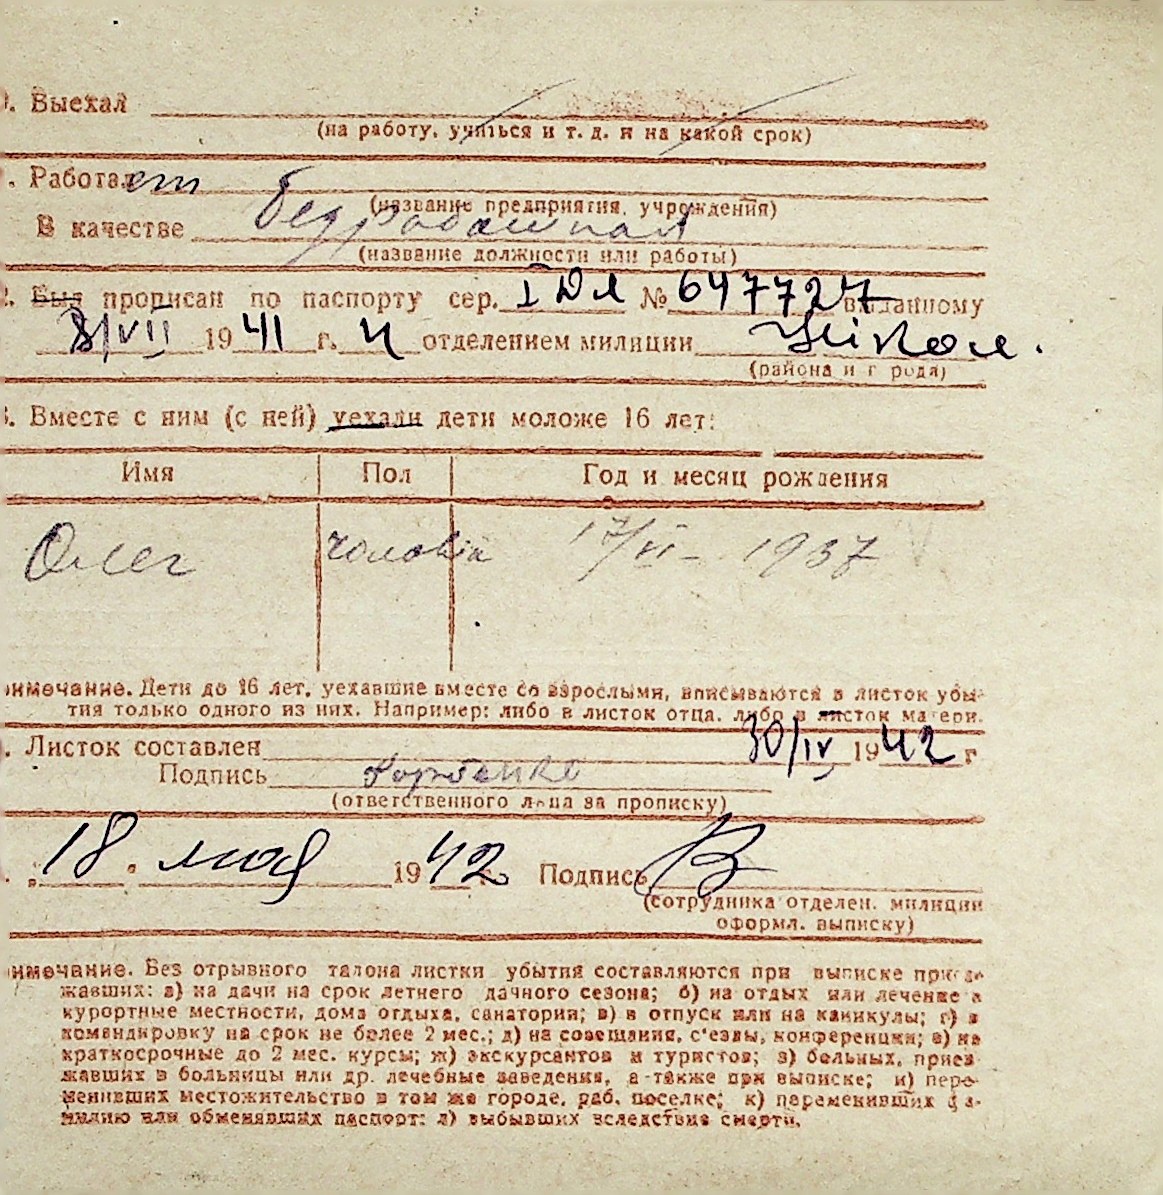 . Выехал
(на работу, учиться и т. д. и на какой срок)
. Работает
(название предприятия, учреждения)
В качестве
(название должности или работы)
2. Был прописан по паспорту сер. I ДЛ № 647727 выданному
8/VII 1941 г. 4 отделением милиции
(района и города)
3. Вместе с ним (с ней) уехали дети моложе 16 лет:
Имя Пол Год и месяц рождения
Олег чоловік 17/VI – 1937
имечание. Дети до 16 лет, уехавшие вместе со взрослыми, вписываются в листок убы-
тия только одного из них. Например: либо в листок отца, либо в листок матери.
. Листок составлен 30/IV 1942 г
Подпись
(ответственного лица за прописку)
. „18" мая 1942 г. Подпись
(сотрудника отделен. милиции
оформл. выписку)
имечание. Без отрывного талона листки убытия составляются при выписке приез-
жавших: а) на дачи на срок летнего дачного сезона; б) на отдых или лечение в
курортные местности, дома отдыха, санатории; в) в отпуск или на каникулы; г) в
командировку на срок не более 2 мес.; д) на совещания, с'езды, конференции; е) на
краткосрочные до 2 мес. курсы; ж) экскурсантов и туристов; з) больных, приез-
жавших в больницы или др. лечебные заведения, а также при выписке; и) пере-
менивших местожительство в том же городе, раб. поселке; к) переменивших фа-
милию или обменявших паспорт; л) выбывших вследствие смерти.